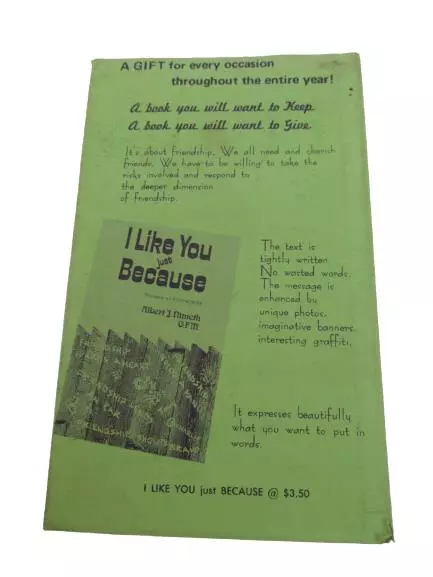 A GIFT for every occasion
throughout the entire year!
A book you will want to Keep
A book you will want to Give
It's about friendship. We all need and cherish
friends. We have to be willing to take the
risks involved and respond to
the deeper dimension
of friendship.
I Like You
just
Because
Albert J. Nimeth
O.F.M.
The text is
tightly written.
No wasted words.
The message is
enhanced by
unique photos,
imaginative banners,
interesting graffiti.
It expresses beautifully
what you want to put in
words.
I LIKE YOU just BECAUSE @ $3.50